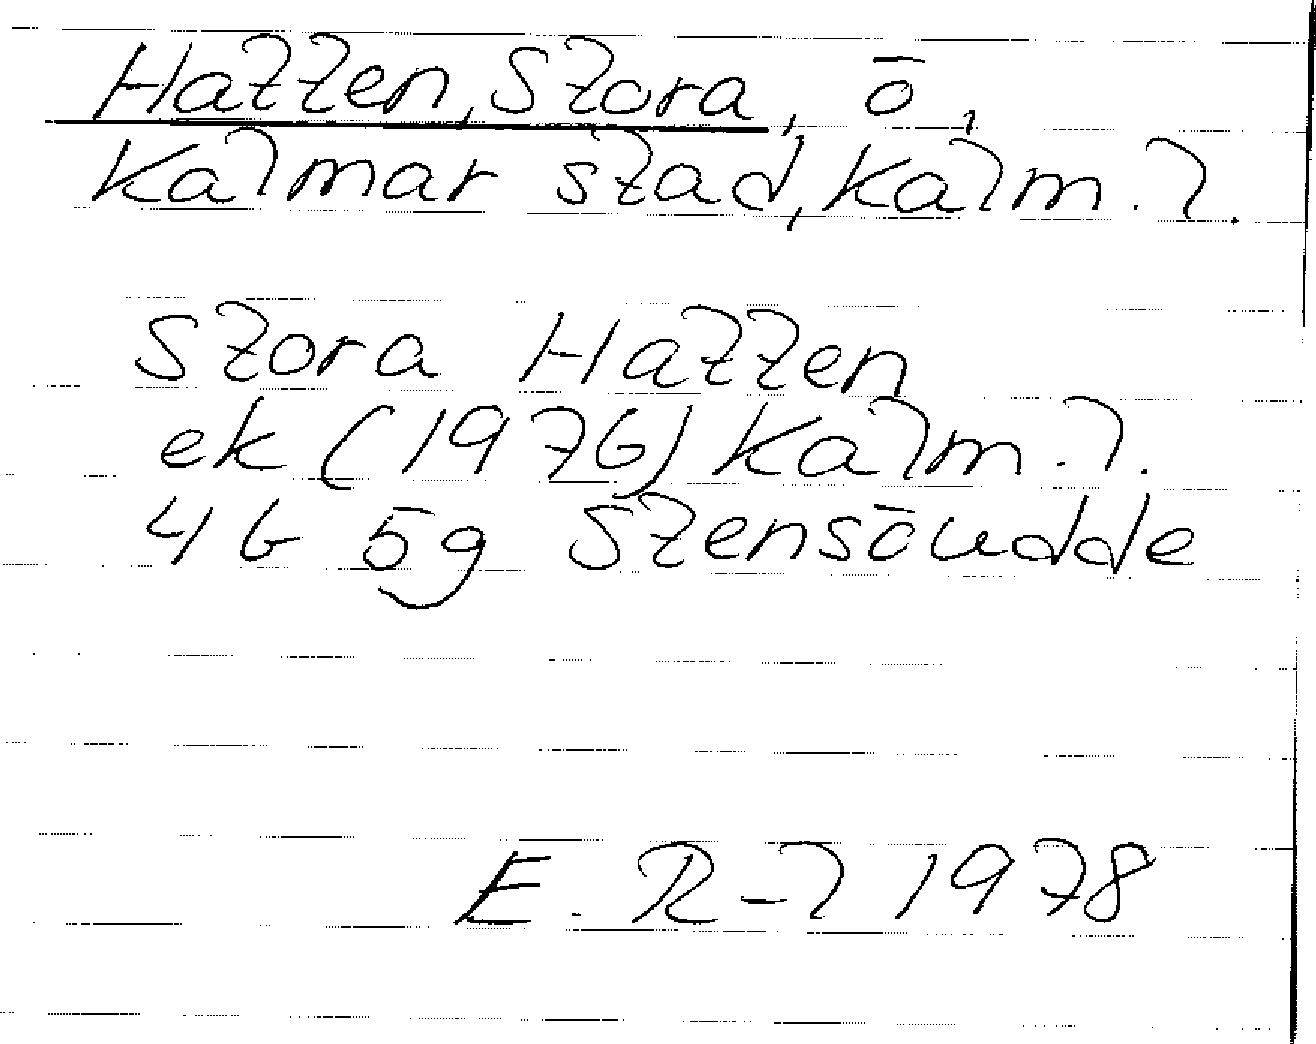 Hatten, Stora, ö,
Kalmar stad, Kalm. l.
Stora Hatten
ek (1976) Kalm. l.
4G 5g Stensöudde
E. R-l 1978